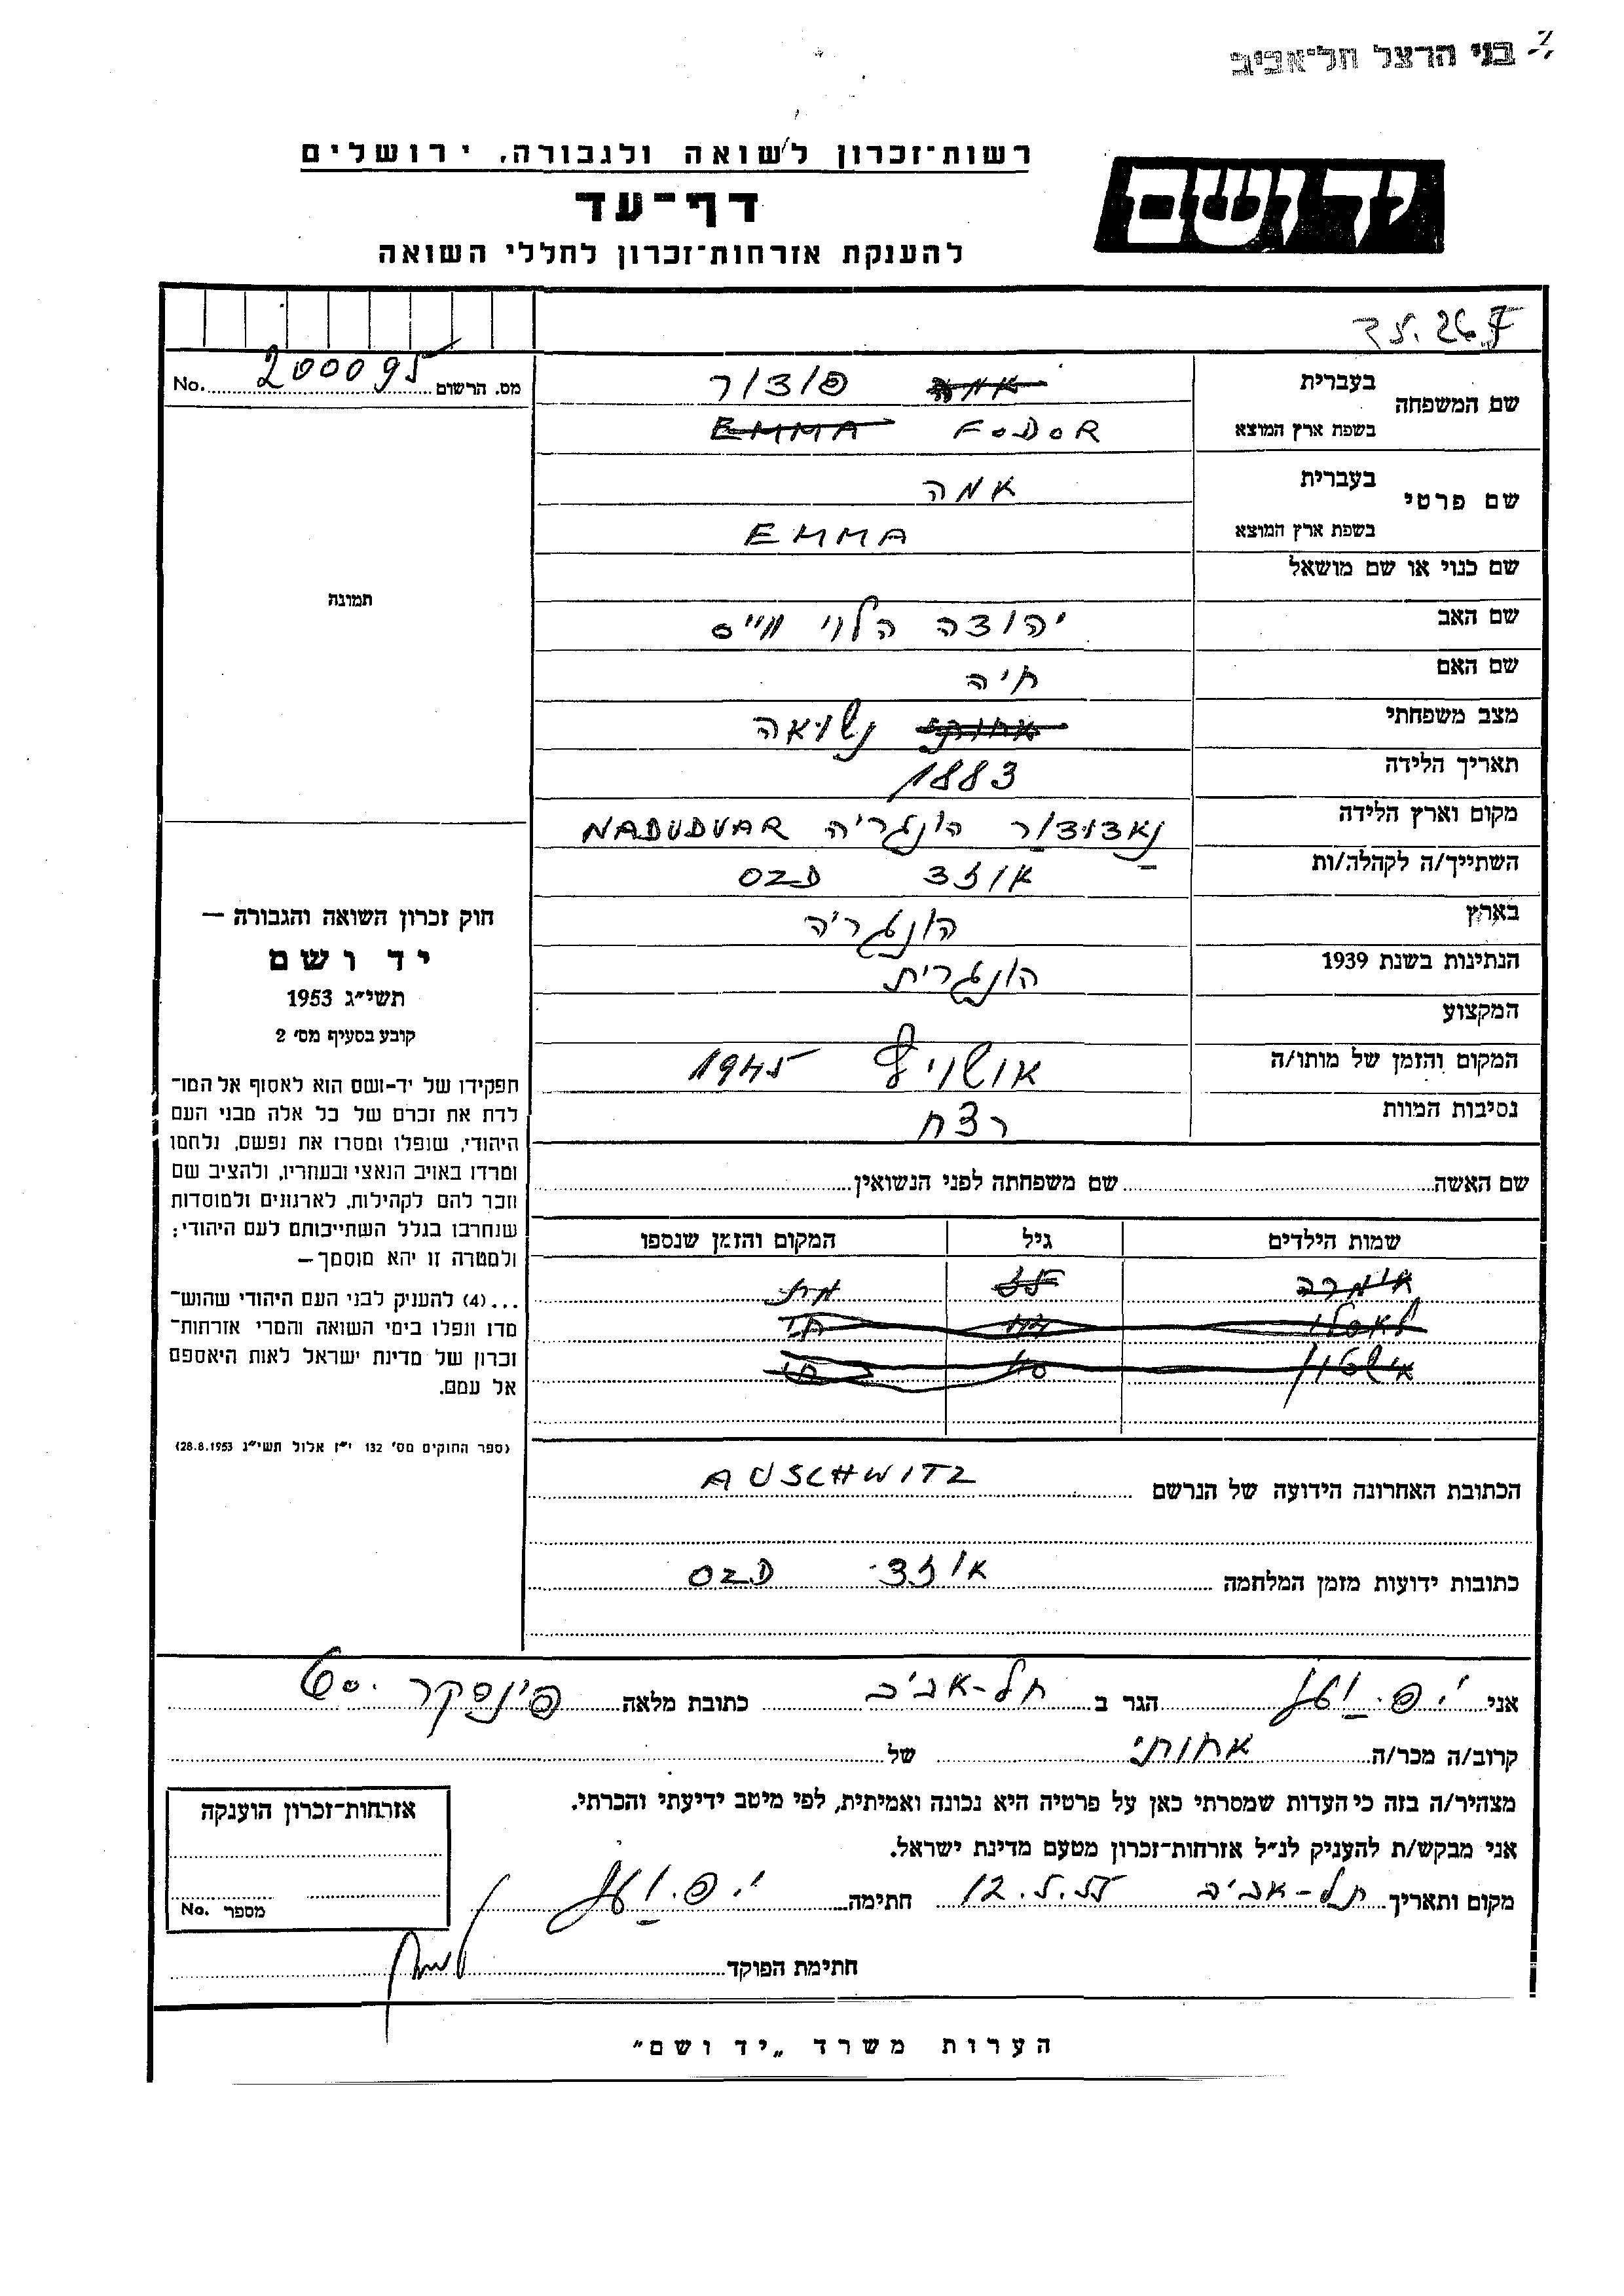 בני הרצל תל־אביב
רשות־זכרון לשואה ולגבורה, ירושלים
דף־עד
להענקת אזרחות־זכרון לחללי השואה
יד ושם
מס. הרשום 200095 No.
שם המשפחה בעברית אמה פודור
בשפת ארץ המוצא FODOR EMMA
שם פרטי בעברית אמה
בשפת ארץ המוצא EMMA
שם כנוי או שם מושאל
תמונה
שם האב יהודה הלוי ווייס
שם האם חיה
מצב משפחתי אחותי נשואה
תאריך הלידה 1883
מקום וארץ הלידה נאדודור הונגריה NADUDVAR
השתייך/ה לקהלה/ות אוזד OZD
בארץ הונגריה
הנתינות בשנת 1939 הונגרית
המקצוע
המקום והזמן של מותו/ה אושויץ 1945
נסיבות המוות רצח
שם האשה שם משפחתה לפני הנשואין
שמות הילדים גיל המקום והזמן שנספו
הכתובת האחרונה הידועה של הנרשם AUSCHWITZ
כתובות ידועות מזמן המלחמה אוזד OZD
חוק זכרון השואה והגבורה —
יד ושם
תשי״ג 1953
קובע בסעיף מס׳ 2
תפקידו של יד-ושם הוא לאסוף אל המו־
לדת את זכרם של כל אלה מבני העם
היהודי, שנפלו ומסרו את נפשם, נלחמו
ומרדו באויב הנאצי ובעוזריו, ולהציב שם
וזכר להם לקהילות, לארגונים ולמוסדות
שנחרבו בגלל השתייכותם לעם היהודי;
ולמטרה זו יהא מוסמך—
...(4) להעניק לבני העם היהודי שהוש־
מדו ונפלו בימי השואה והמרי אזרחות־
זכרון של מדינת ישראל לאות היאספם
אל עמם.
(ספר החוקים מס׳ 132 י״ז אלול תשי״ג 28.8.1953)
אני הגר ב תל-אביב כתובת מלאה פינסקר 60
קרוב/ה מכר/ה אחותי של
מצהיר/ה בזה כי העדות שמסרתי כאן על פרטיה היא נכונה ואמיתית, לפי מיטב ידיעתי והכרתי.
אני מבקש/ת להעניק לנ״ל אזרחות־זכרון מטעם מדינת ישראל.
מקום ותאריך תל-אביב 12.5.55 חתימה
חתימת הפוקד
אזרחות־זכרון הוענקה
מספר No.
הערות משרד „יד ושם״